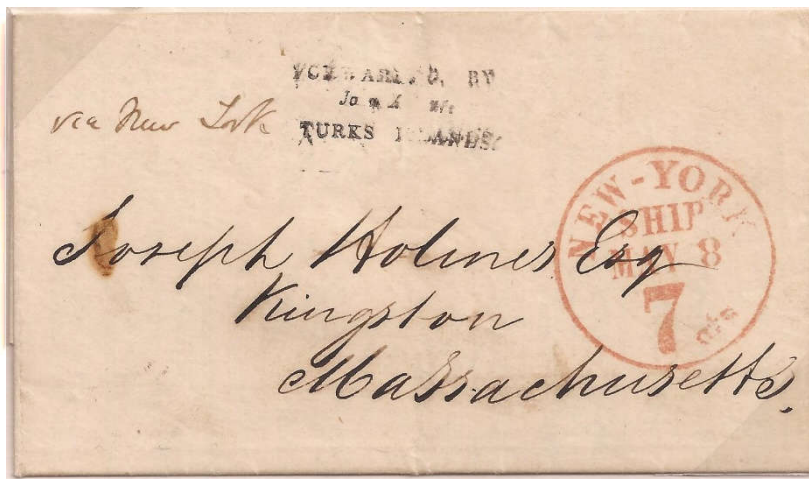 FORWARDED, BY
TURKS ISLANDS.
via New York
NEW-YORK
SHIP
MAY 8
7
cts
Joseph Holmes Esq
Kingston
Massachusetts.